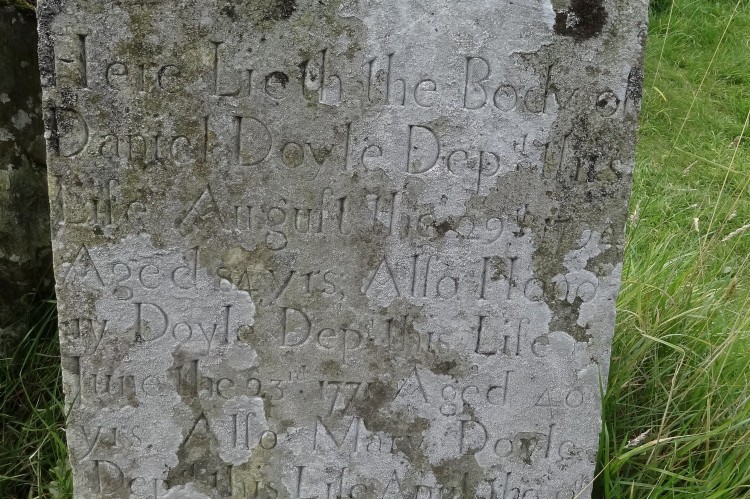 Here Lieth the Body of
Daniel Doyle Depd this
Life Auguſt the 29th
Aged 84 yrs, Alſo Hono
ry Doyle Depd this Life
June the 23rd Aged 40
yrs, Alſo Mary Doyle
Depd this Life April the